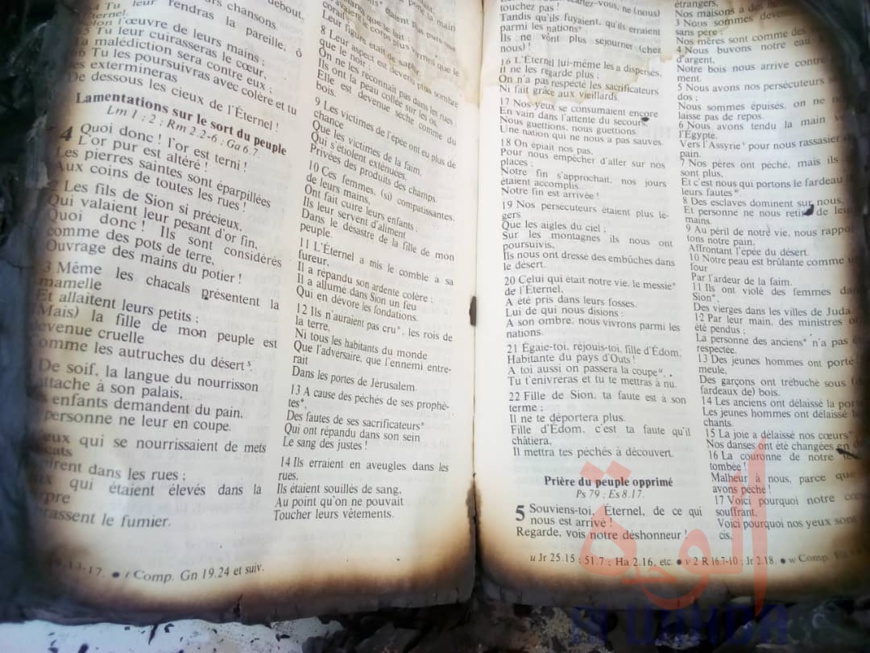 debout,
chansons.
Tu leur rendras la pareille, ô
Éternel,
l'œuvre de leurs mains ;
5 Tu leur cuirasseras le cœur.
Ta malédiction sera contre eux ;
6 Tu les poursuivras avec colère et tu
les extermineras
De dessous les cieux de l'Éternel !
Lamentations sur le sort du peuple
Lm 1 ; 2 ; Rm 2.2-6 ; Ga 6.7.
4 Quoi donc ! l'or est terni !
L'or pur est altéré !
Les pierres saintes sont éparpillées
Aux coins de toutes les rues !
2 Les fils de Sion si précieux,
Qui valaient leur pesant d'or fin,
Quoi donc ! Ils sont considérés
comme des pots de terre,
Ouvrage des mains du potier !
3 Même les chacals présentent la
mamelle
Et allaitent leurs petits ;
(Mais) la fille de mon peuple est
devenue cruelle
Comme les autruches du désert
De soif, la langue du nourrisson
attache à son palais,
enfants demandent du pain,
personne ne leur en coupe.
eux qui se nourrissaient de mets
dans les rues ;
qui étaient élevés dans la
pourpre
le fumier.
8 Leur aspect est devenu plus sombre
que le noir ;
On ne les reconnaît pas dans les rues
Ils ont la peau collée sur les os,
Elle est devenue sèche comme du
bois.
9 Les victimes de l'épée ont eu plus de
chance
Que les victimes de la faim,
Qui s'étiolent exténuées,
Privées des produits des champs.
10 Ces femmes, (si) compatissantes,
de leurs mains,
Ont fait cuire leurs enfants ;
Ils leur servent d'aliment
Dans le désastre de la fille de mon
peuple.
11 L'Éternel a mis le comble à sa
fureur,
Il a répandu son ardente colère ;
Il a allumé dans Sion un feu
Qui en dévore les fondations.
12 Ils n'auraient pas cru*, les rois de
la terre,
Ni tous les habitants du monde
Que l'adversaire, que l'ennemi entre-
rait
Dans les portes de Jérusalem.
13 A cause des péchés de ses prophè-
tes*,
Des fautes de ses sacrificateurs*
Qui ont répandu dans son sein
Le sang des justes !
14 Ils erraient en aveugles dans les
rues,
Ils étaient souillés de sang,
Au point qu'on ne pouvait
Toucher leurs vêtements.
13-17. ● t Comp. Gn 19.24 et suiv.
touchez pas !
Tandis qu'ils fuyaient, qu'ils erraient
parmi les nations*
Ils ne vont plus séjourner (chez
nous) !
16 L'Éternel lui-même les a dispersés,
Il ne les regarde plus ;
On n'a pas respecté les sacrificateurs
Ni fait grâce aux vieillards.
17 Nos yeux se consumaient encore
En vain dans l'attente du secours
Nous guettions, nous guettions
Une nation qui ne nous a pas sauvés.
18 On épiait nos pas,
Pour nous empêcher d'aller sur nos
places ;
Notre fin s'approchait, nos jours
étaient accomplis...
Notre fin est arrivée !
19 Nos persécuteurs étaient plus lé-
gers
Que les aigles du ciel ;
Sur les montagnes ils nous ont
poursuivis,
Ils nous ont dressé des embûches dans
le désert.
20 Celui qui était notre vie, le messie*
de l'Éternel,
A été pris dans leurs fosses,
Lui de qui nous disions :
A son ombre, nous vivrons parmi les
nations.
21 Égaie-toi, réjouis-toi, fille d'Édom,
Habitante du pays d'Outs !
A toi aussi on passera la coupe*,
Tu t'enivreras et tu te mettras à nu.
22 Fille de Sion, ta faute est à son
terme ;
Il ne te déportera plus.
Fille d'Édom, c'est ta faute qu'il
châtiera,
Il mettra tes péchés à découvert.
Prière du peuple opprimé
Ps 79 ; Es 8.17.
5 Souviens-toi, Éternel, de ce qui
nous est arrivé !
Regarde, vois notre déshonneur !
étrangers,
Nos maisons à des
3 Nous sommes
sans père ;
Nos mères sont comme des
4 Nous buvons notre eau
d'argent,
Notre bois nous arrive contre
ment.
5 Nous avons nos persécuteurs
dos ;
Nous sommes épuisés, on ne
laisse pas de repos.
6 Nous avons tendu la main
l'Égypte,
Vers l'Assyrie* pour nous rassasier
pain.
7 Nos pères ont péché, mais ils
sont plus,
Et c'est nous qui portons le fardeau
leurs fautes*
8 Des esclaves dominent sur nous,
Et personne ne nous retire de leurs
mains.
9 Au péril de notre vie, nous
tons notre pain,
Affrontant l'épée du désert.
10 Notre peau est brûlante comme un
four
Par l'ardeur de la faim.
11 Ils ont violé des femmes dans
Sion*,
Des vierges dans les villes de Juda
12 Par leur main, des ministres
été pendus ;
La personne des anciens* n'a pas
respectée.
13 Des jeunes hommes ont porté
meule,
Des garçons ont trébuché sous
fardeaux de) bois.
14 Les anciens ont délaissé la porte
Les jeunes hommes ont délaissé
chants.
15 La joie a délaissé nos cœurs
Nos danses ont été changées en
16 La couronne de notre
tombée !
Malheur à nous, parce que
avons péché !
17 Voici pourquoi notre
souffrant,
Voici pourquoi nos yeux sont
cis,
u Jr 25.15 ; 51.7 ; Ha 2.16, etc. ● v 2 R 16.7-10 ; Jr 2.18. ● w Comp.